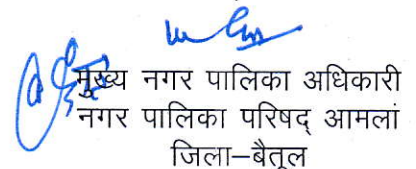 मुख्य नगर पालिका अधिकारी
नगर पालिका परिषद् आमलां
जिला–बैतूल